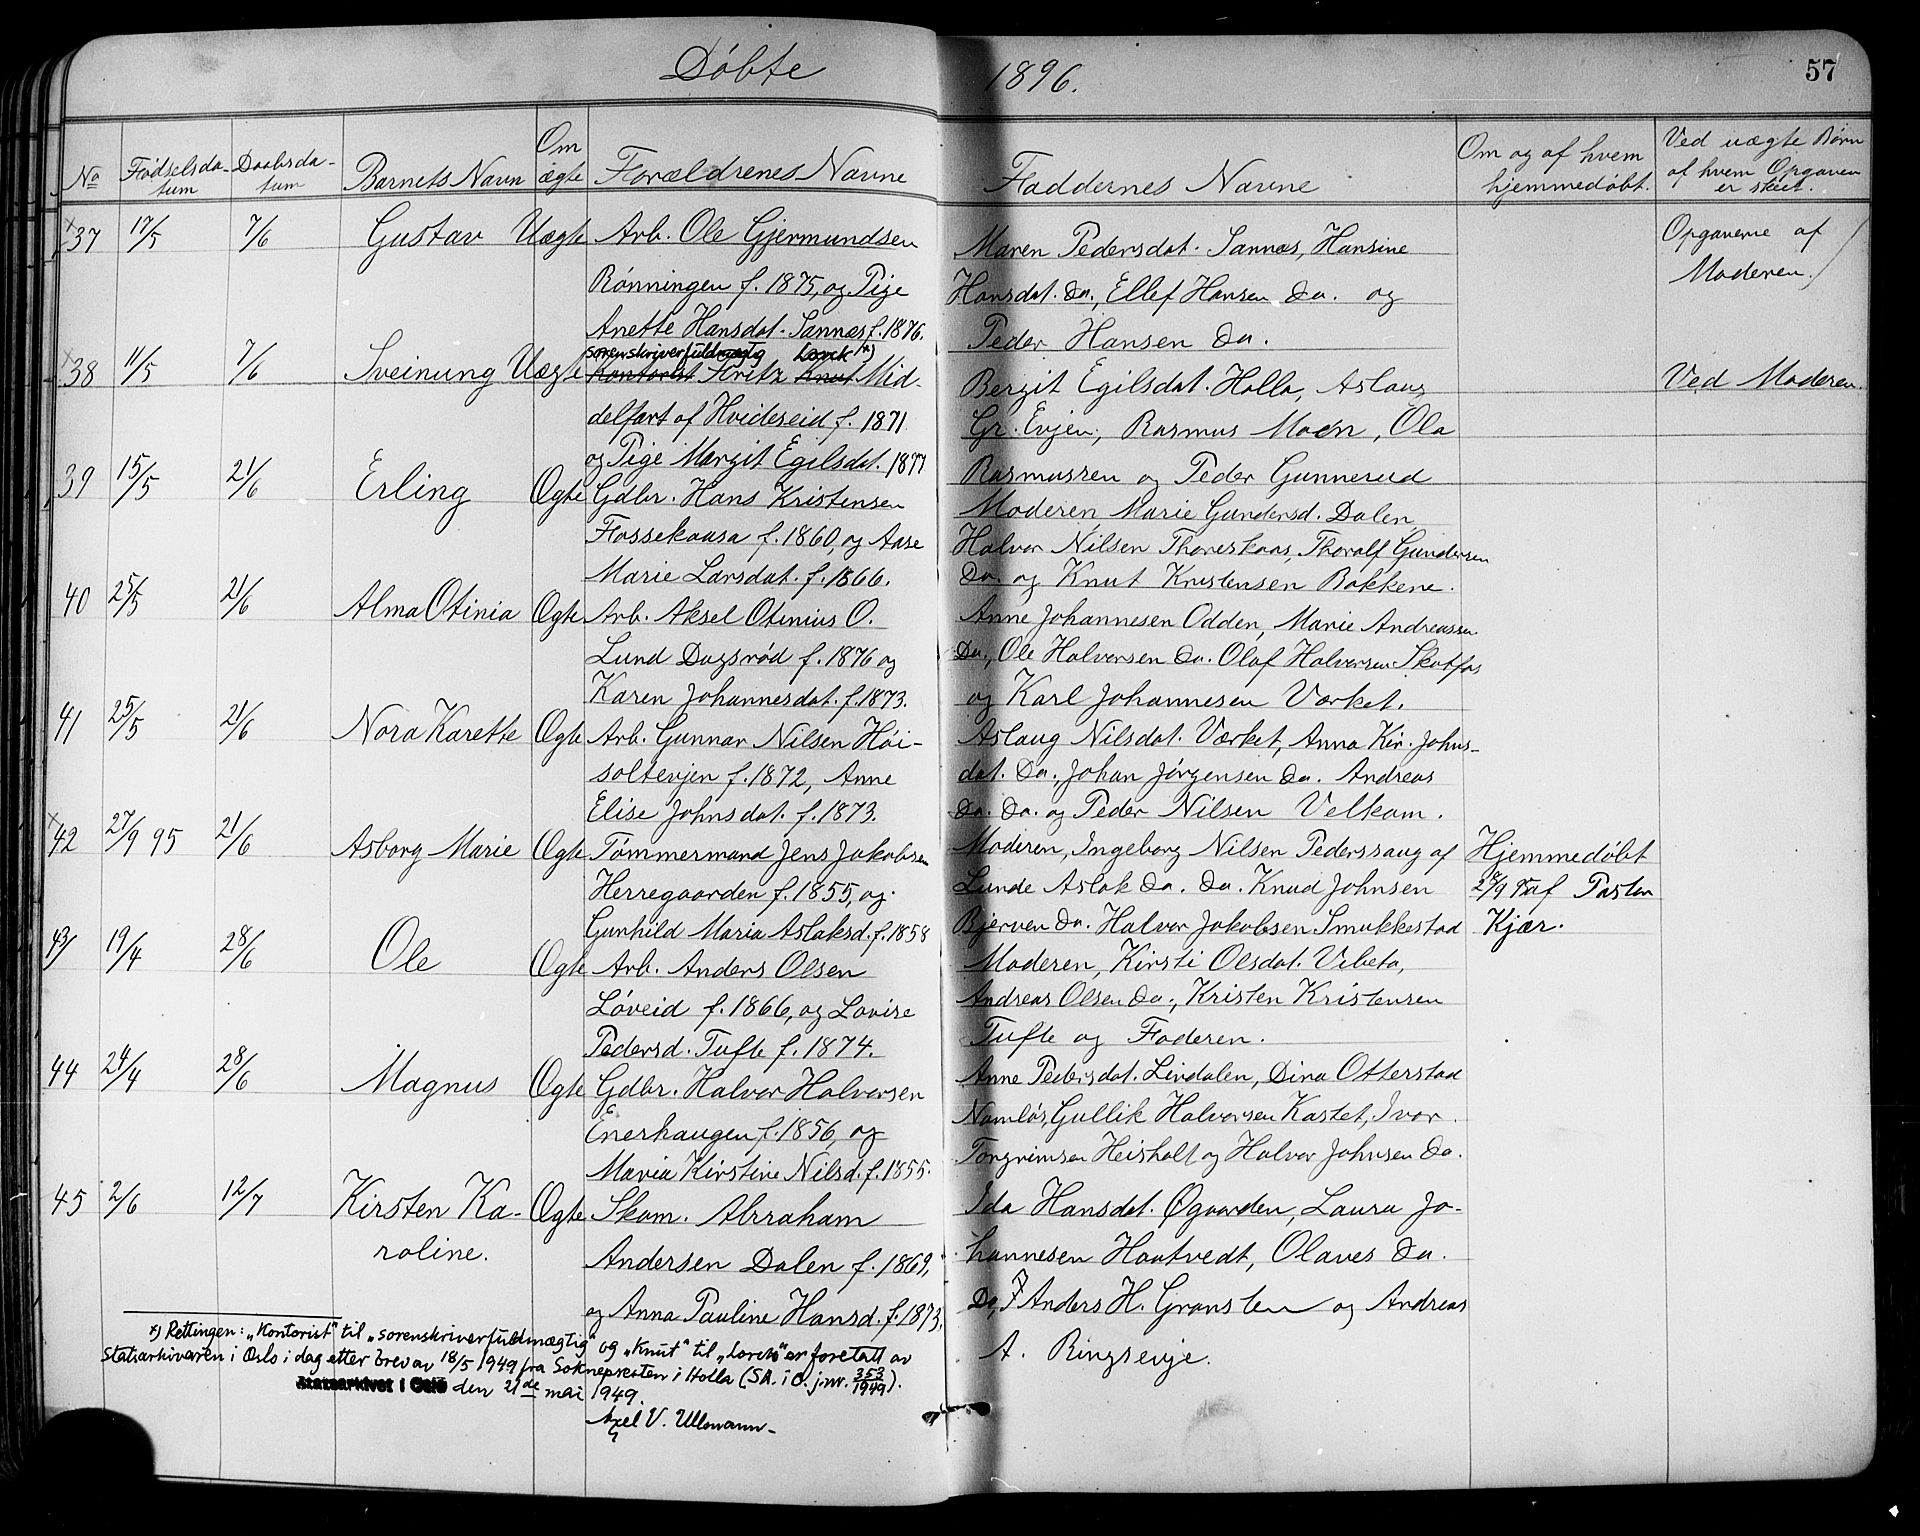 Døbte 1896. 57
No Fødselsdatum Daabsdatum Barnets Navn Om ægte Forældrenes Navne Faddernes Navne Om og af hvem hjemmedøbt. Ved uægte Børn af hvem Opgaven er skeet.
37 17/5 7/6 Gustav Uægte Arb. Ole Gjermundsen Maren Pedersdat. Sannæs, Hansine Opgaverne af
Rønningen f. 1875, og Pige Hansdat. Do., Ellef Hansen Do. og Moderen.
Anette Hansdat. Sannæs f. 1876. Peder Hansen Do.
sorenskriverfuldmægtig Lorck *)
38 11/5 7/6 Sveinung Uægte Kontorist Fritz Knut Mid- Bergit Egilsdat. Holla, Aslaug Ved Moderen.
delfart af Hvideseid f. 1871 Gr. Evjen, Rasmus Moen, Ola
og Pige Margit Egilsdat. 1877 Rasmussen og Peder Gunnerud
39 15/5 21/6 Erling Ægte Gdbr. Hans Kristensen Moderen Marie Gundersd. Dalen,
Fossekaasa f. 1860, og Aase Halvor Nilsen Thoreskaas, Thoralf Gundersen
Marie Larsdat. f. 1866. Do. og Knut Kristensen Bakkene.
40 25/5 21/6 Alma Otinia Ægte Arb. Aksel Otinius O. Anne Johannesen Odden, Marie Andreassen
Lund Dagsrød f. 1876 og Do., Ole Halvorsen Do. Olaf Halvorsen Skotfos
Karen Johannesdat. f. 1873. og Karl Johannesen Værket.
41 25/5 21/6 Nora Karette Ægte Arb. Gunnar Nilsen Høi- Aslaug Nilsdat. Værket, Anna Kir. Johns-
saltevjen f. 1872, Anne dat. Do., Johan Jørgensen Do. Andreas
Elise Johnsdat. f. 1873. Do. Do. og Peder Nilsen Velkam.
42 27/9 95 21/6 Asborg Marie Ægte Tømmermand Jens Jakobsen Moderen, Ingeborg Nilsen Pederssaug af Hjemmedøbt
Herregaarden f. 1855, og Lunde Aslak Do. Do. Knud Johnsen af Pastor
Gunhild Maria Aslaksd. f. 1858 Bjerven Do. Halvor Jakobsen Smukkestad Kjær.
43 19/4 28/6 Ole Ægte Arb. Anders Olsen Moderen, Kirsti Olsdat. Vibeto,
Løveid f. 1866, og Lovise Andreas Olsen Do., Kristen Kristensen
Pedersd. Tufte f. 1874. Tufte og Faderen.
44 24/4 28/6 Magnus Ægte Gdbr. Halvor Halvorsen Anne Pedersdat. Lindalen, Dina Otterstad
Enerhaugen f. 1856, og Namløs, Gullik Halvorsen Kastet, Ivar
Maria Kirstine Nilsd. f. 1855. Torgrimsen Heisholt og Halvor Johnsen Do.
45 2/6 12/7 Kirsten Ka- Ægte Skom. Abraham Ida Hansdat. Øgaarden, Laura Jo-
roline. Andersen Dalen f. 1869, hannesen Haatvedt, Olaves Do.
og Anna Pauline Hansd. f. 1873. Do, Anders H. Gransten og Andreas
A. Ringsevje.
*) Rettingen: „Kontorist" til „sorenskriverfuldmægtig" og „Knut" til „Lorck" er foretatt av
Statsarkivaren i Oslo i dag etter brev av 18/5 1949 fra Soknepresten i Holla (SA. i O. j.nr. 353/1949).
Statsarkivet i Oslo den 21de mai 1949.
Axel V. Ullmann